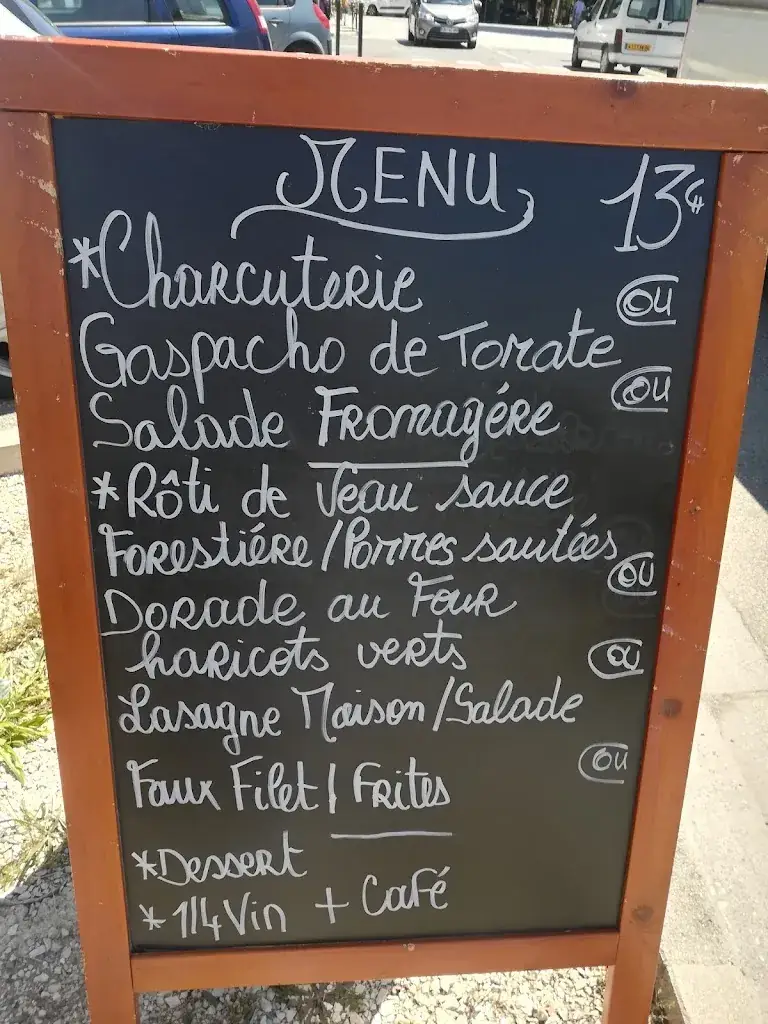 MENU 13€
*Charcuterie
OU
Gaspacho de Tomate
OU
Salade Fromagére
*Rôti de Veau sauce
Forestiére/Pommes sautées
OU
Dorade au Four
haricots verts
OU
Lasagne Maison/Salade
OU
Faux Filet/Frites
*Dessert
*1/4 Vin + Café